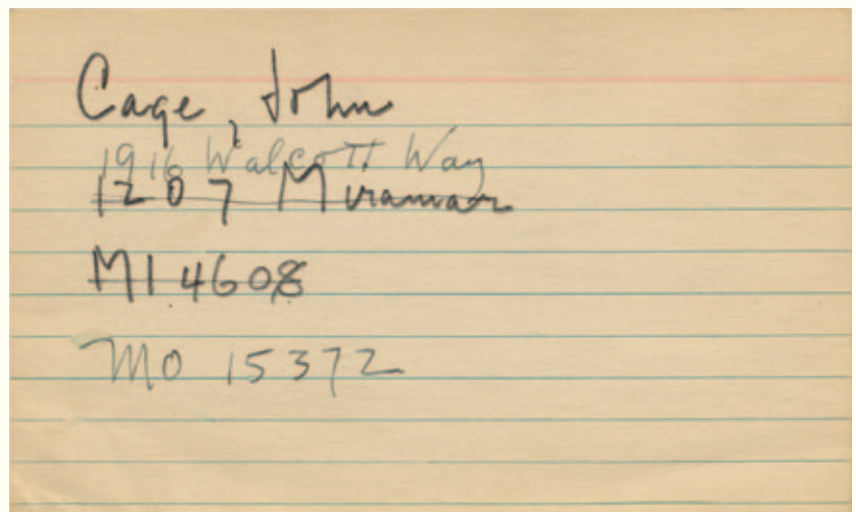 Cage, John
1916 Walcott Way
1207 Miramar
MI 4608
MO 15372